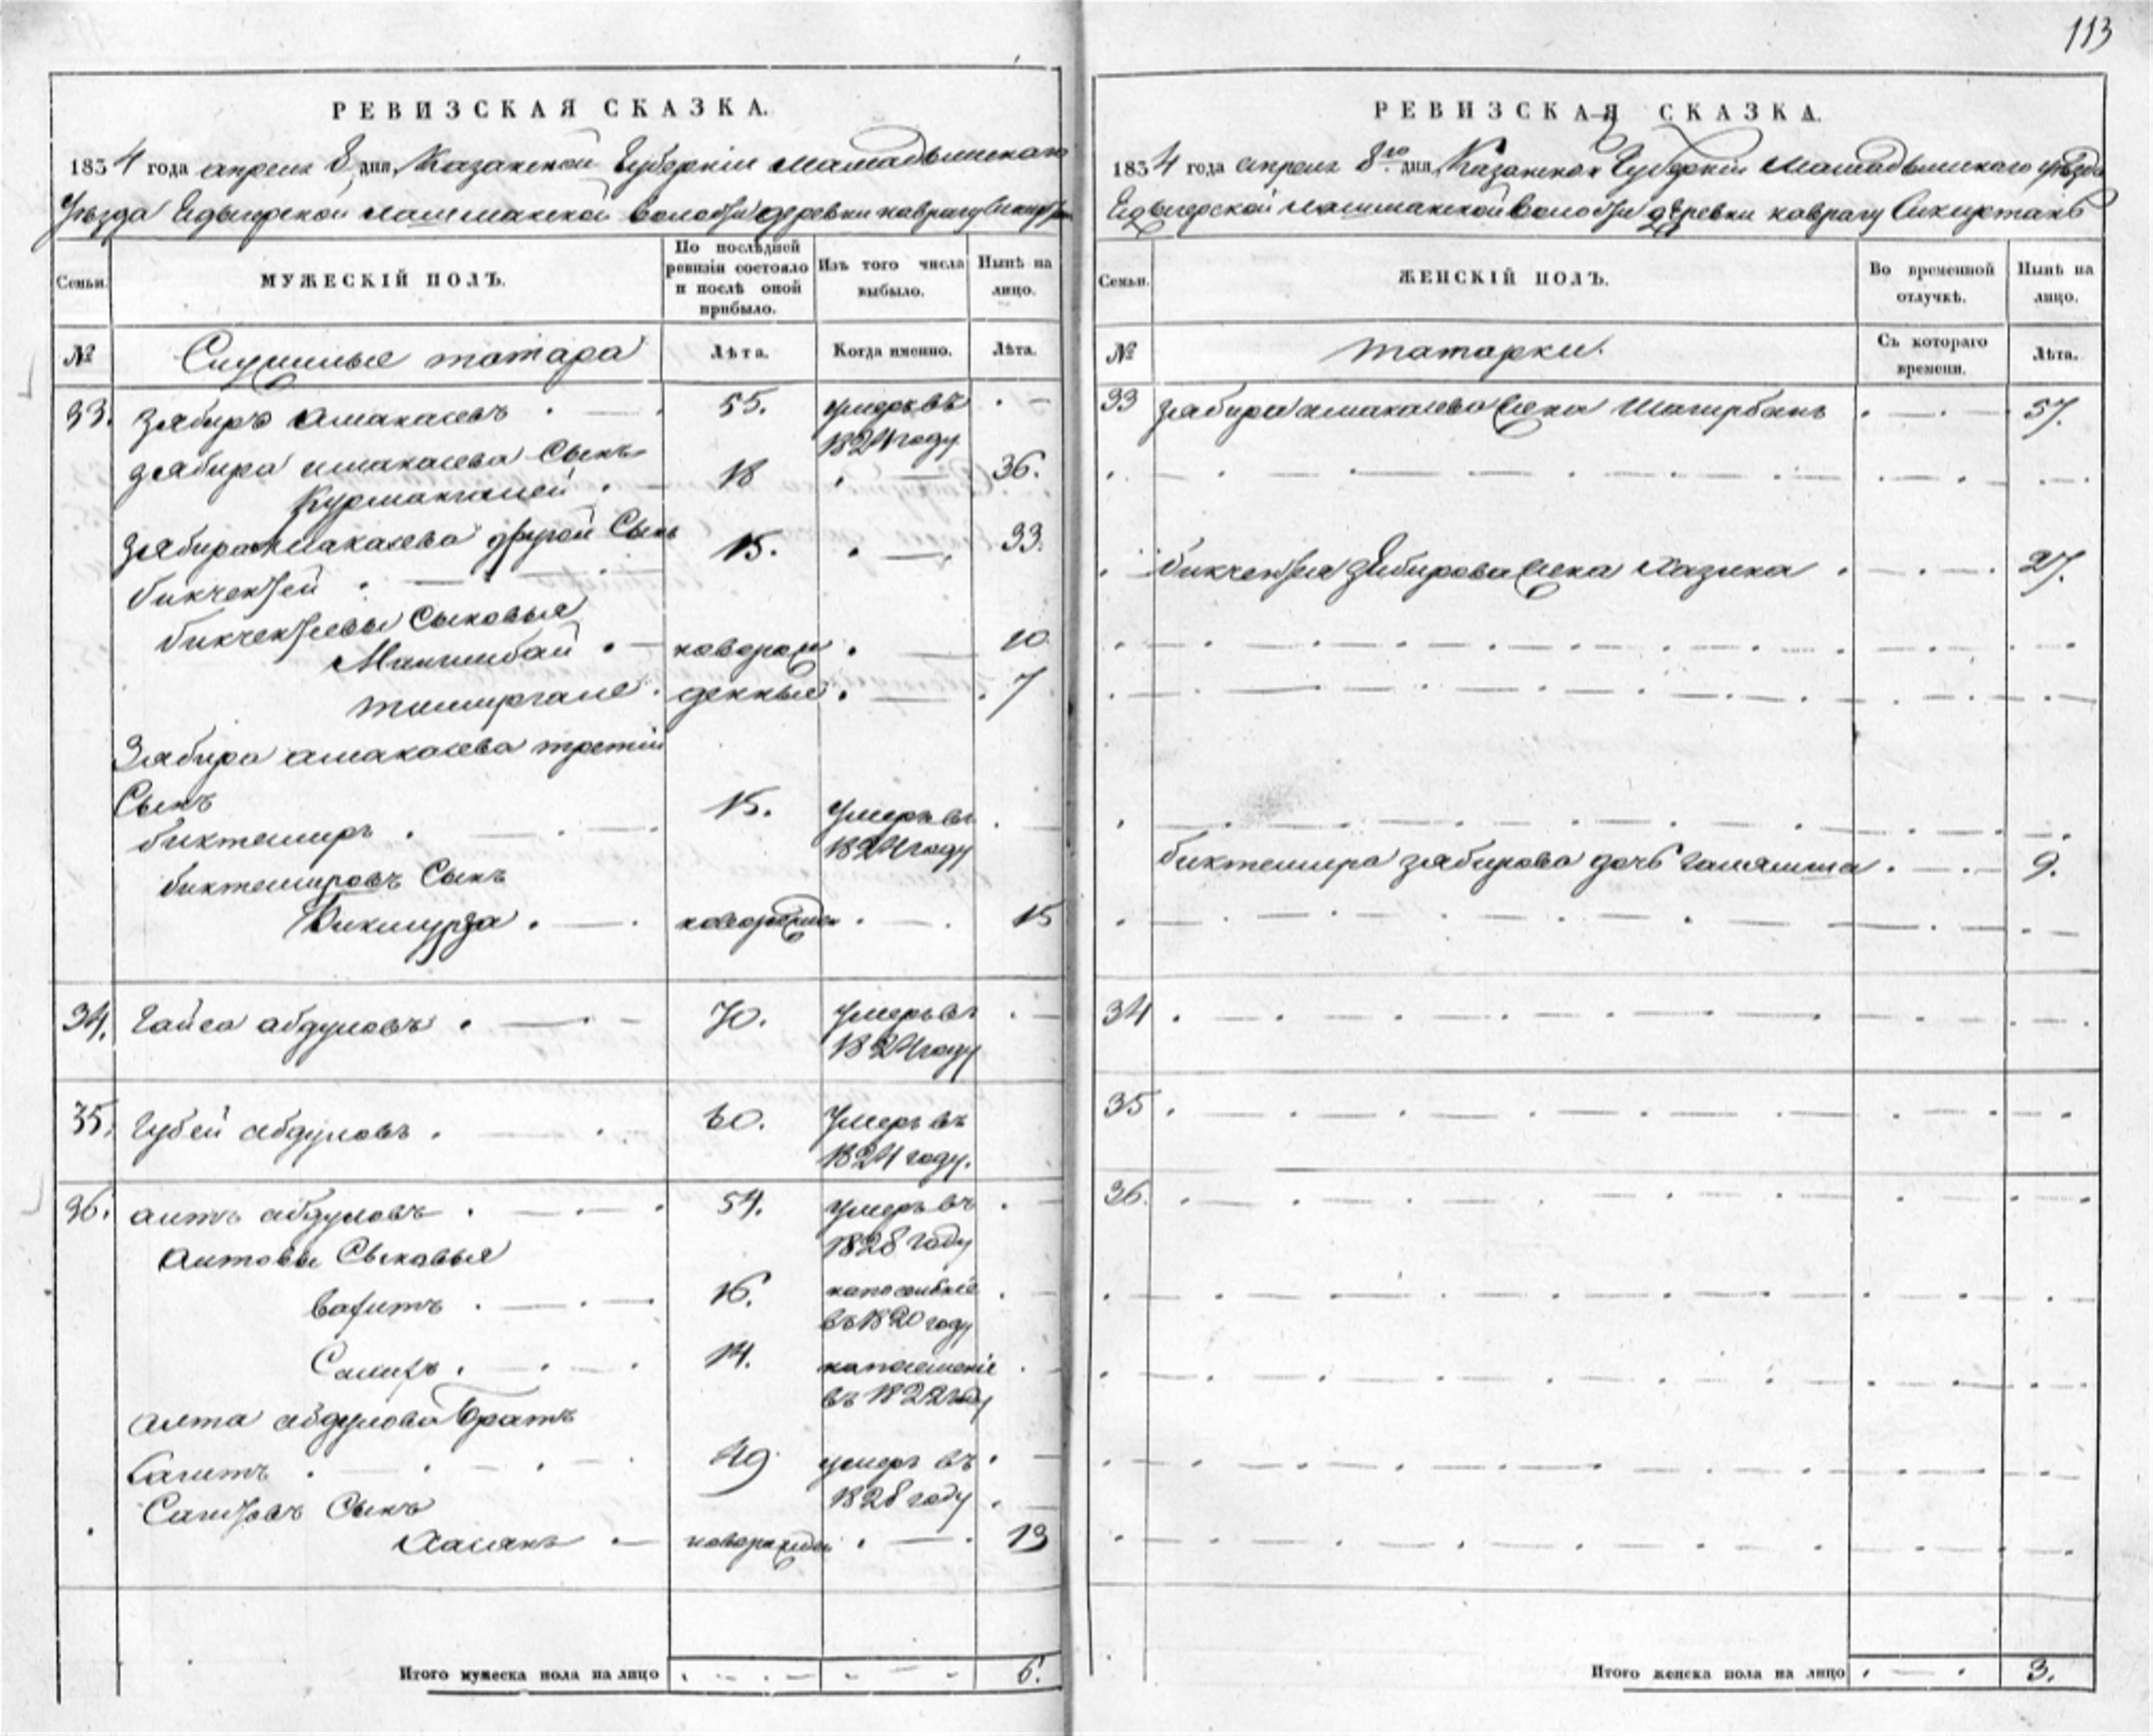 113
РЕВИЗСКАЯ СКАЗКА.
1834 года апреля 8 дня, Казанской Губерніи Мамадышскаго
Уѣзда Едыгерской лашманской волости деревни
Семьи.
МУЖЕСКІЙ ПОЛЪ.
По послѣдней
ревизіи состояло
и послѣ оной
прибыло.
Изъ того числа
выбыло.
Нынѣ на
лицо.
№
Служилые татара
Лѣта.
Когда именно.
Лѣта.
33. Зябиръ Амакаевъ 55. умеръ въ
1824 году
зябира амакаева Сынъ
Курмангалей 18 36.
Зябира Амакаева другой Сынъ 15. 33.
бикчентей
бикчентеевы Сыновья
Маншибай новорож 10
тимиргали денныя 7
Зябира амакаева третій
Сынъ 15. Умеръ въ
биктемиръ 1824 году
биктемировъ Сынъ
Бикмурза новорожден 15
34. Гайса абдуловъ 70. Умеръ въ
1824 году
35. Губей абдуловъ 60. Умеръ въ
1824 году.
36. аитъ абдуловъ 54. умеръ въ
1828 году
Аитовы Сыновья
Вагитъ 16.
въ 1820 году
14.
въ 1822 году
аита абдулова братъ
Сагитъ 49 умеръ въ
Сагитовъ Сынъ 1828 году
Хасанъ новорожден 13
Итого мужеска пола на лицо 6.
РЕВИЗСКАЯ СКАЗКА.
1834 года апреля 8го дня, Казанской Губерніи Мамадышскаго уѣзда
Едыгерской лашманской волости деревни
Семьи.
ЖЕНСКІЙ ПОЛЪ.
Во временной
отлучкѣ.
Нынѣ на
лицо.
№
татарки.
Съ котораго
времени.
Лѣта.
33 Зябира амакаева жена Шагирбанъ 57.
бикчентея Зябирова жена Хазина 27.
биктемира зябирова дочь 9.
34
35
36.
Итого женска пола на лицо 3.